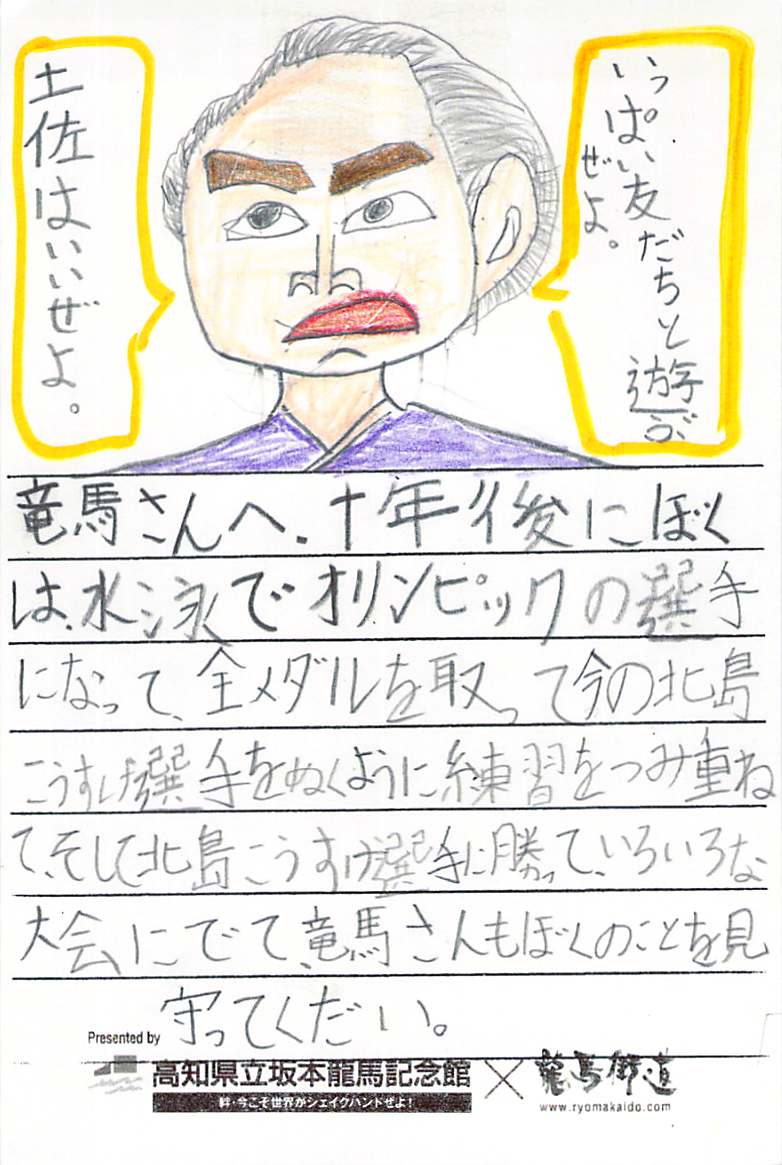 いっぱい友だちと遊ぶ
ぜよ。
土佐はいいぜよ。
竜馬さんへ、十年後にぼく
は、水泳でオリンピックの選手
になって、全メダルを取って今の北島
こうすけ選手をぬくように練習をつみ重ね
て、そして北島こうすけ選手に勝って、いろいろな
大会にでて、竜馬さんもぼくのことを見
守ってくだい。
Presented by
高知県立坂本龍馬記念館×龍馬街道
絆・今こそ世界がシェイクハンドぜよ！
www.ryomakaido.com